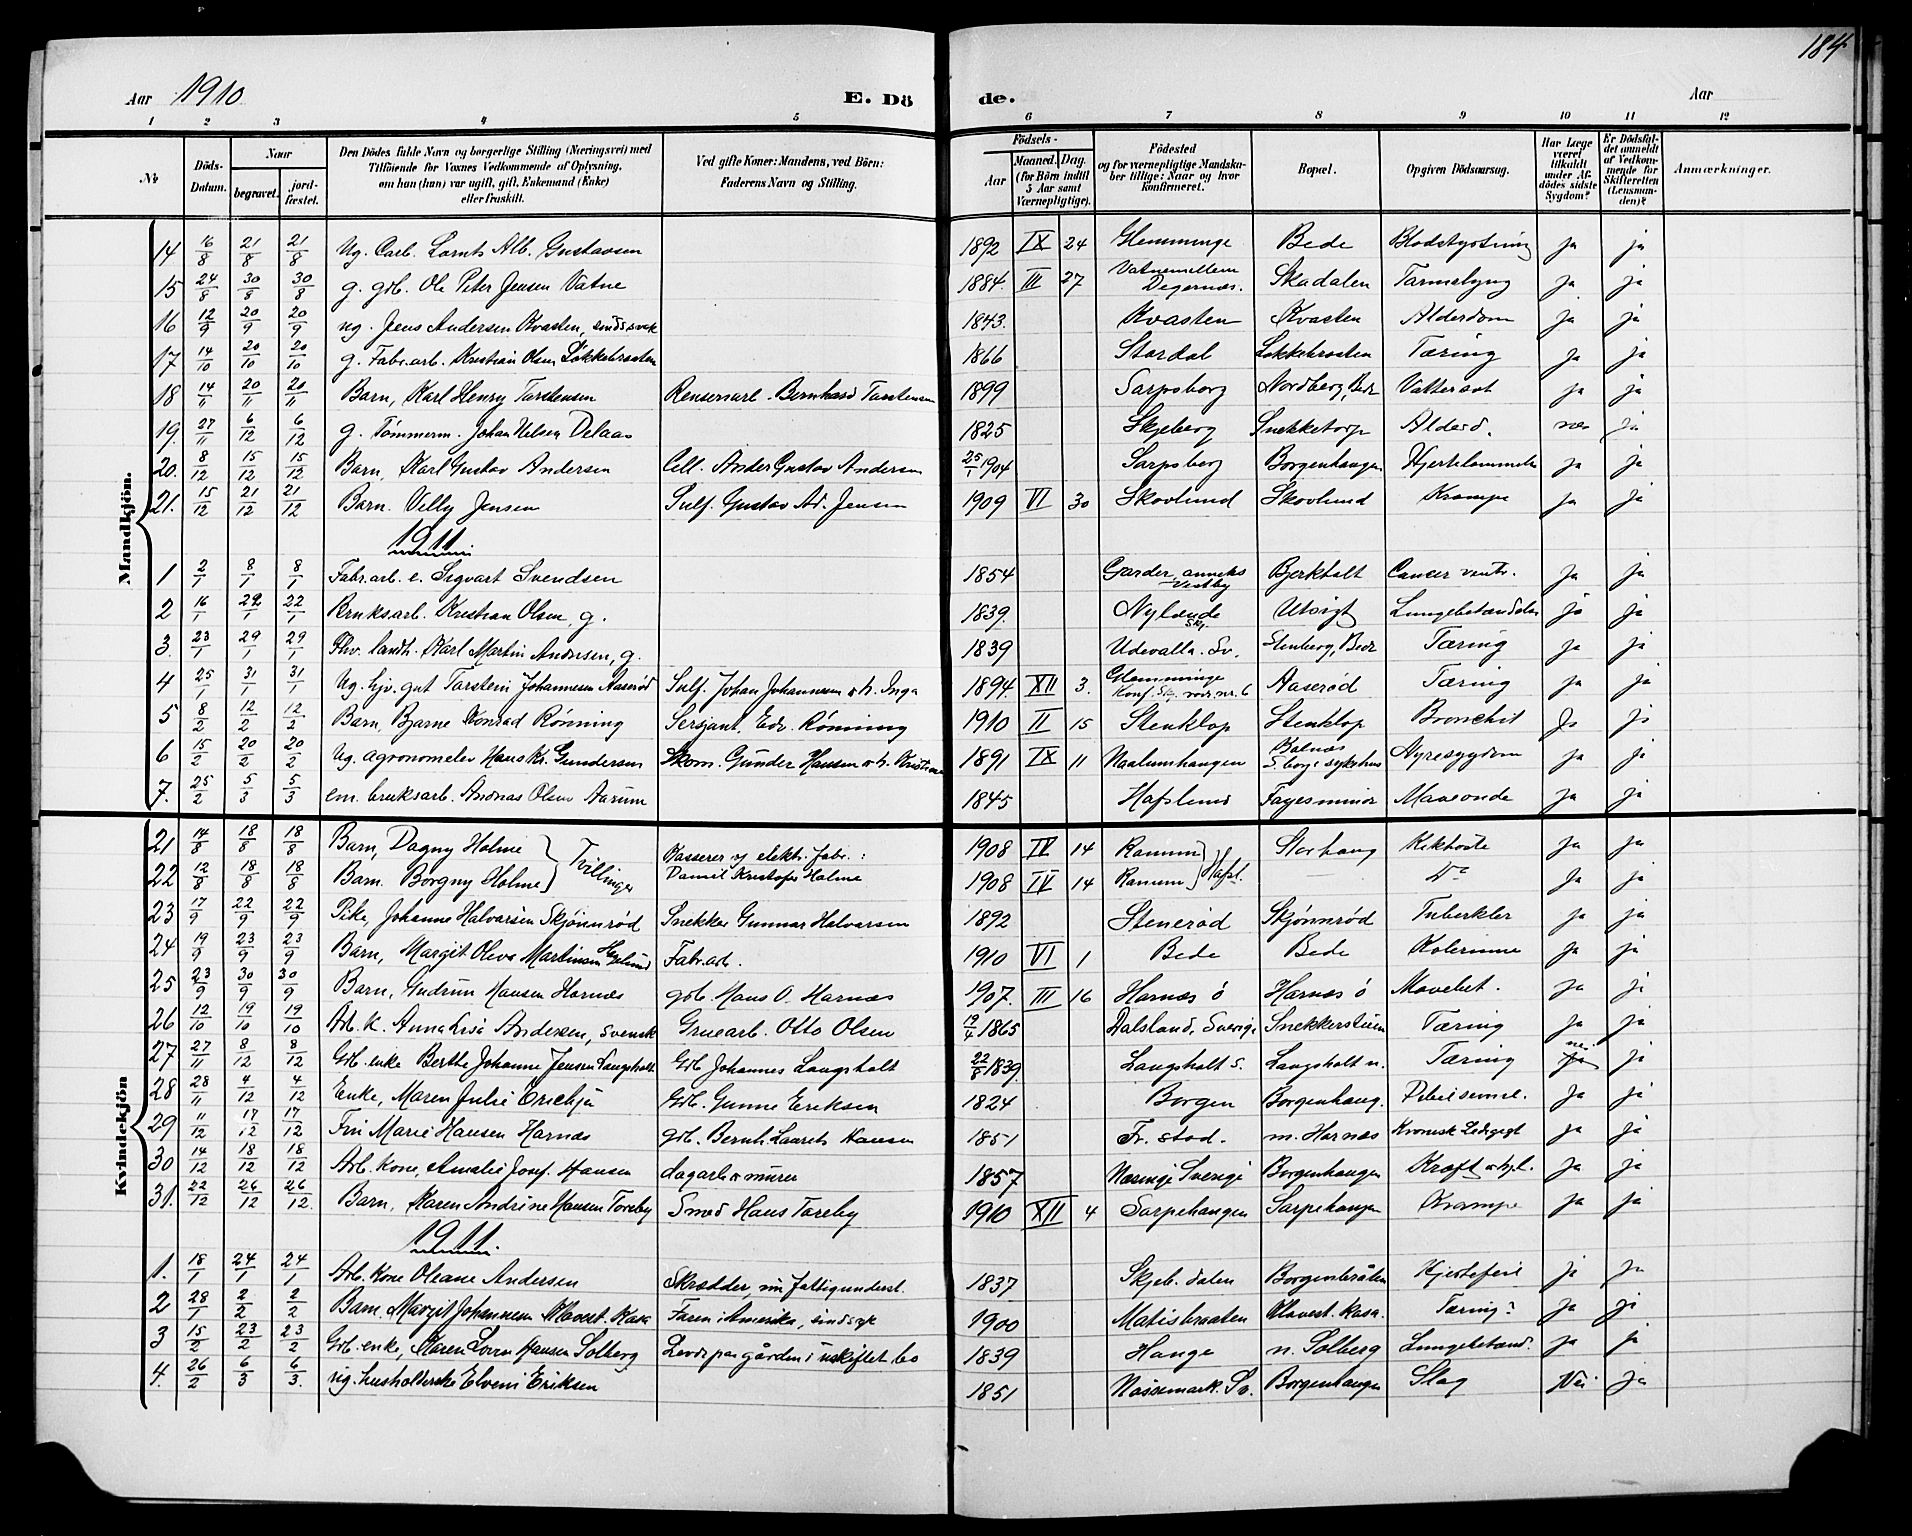 184
Aar 1910 E. Dö de. Aar
1 2 3 4 5 6 7 8 9 10 11 12
№ Döds-Datum. Naar begravet. jordfæstet. Den Dödes fulde Navn og borgerlige Stilling (Næringsvei) med Tilföiende for Voxnes Vedkommende af Oplysning, om han (hun) var ugift, gift, Enkemand (Enke) eller fraskilt. Ved gifte Koner: Mandens, ved Börn: Faderens Navn og Stilling. Födsels- Aar Maaned. Dag. (for Börn indtil 5 Aar samt Værnepligtige). Födested og for værnepligtige Mandskaber tillige: Naar og hvor konfirmeret. Bopæl. Opgiven Dödsaarsag. Har Læge været tilkaldt under Afdödes sidste Sygdom? Er Dödsfaldet anmeldt af Vedkommende for Skifteretten (Lensmanden)? Anmærkninger.
Mandkjön.
14 16/8 21/8 21/8 Ug. Carl Lornts Alb. Gustavsen 1892 IX 24 Glemminge Bede Blodstyrtning ja ja
15 24/8 30/8 30/8 g. grb. Ole Peter Jensen Vatne 1884. III 27 Vatnemellem Degernæs. Skadalen Tarmslyng ja ja
16 12/9 20/9 20/9 ug. Jens Andersen Kvasten, sindssvak 1843. Kvasten Kvasten Alderdom ja ja
17 14/10 20/10 20/10 g. Fabr.arb. Kristian Olsen Løkkebraaten 1866 Stordal Løkkebraaten Tæring ja ja
18 14/11 20/11 20/11 Barn, Karl Henry Torstensen Rensemarb. Bernhard Torstensen 1899 Sarpsborg Nordberg, Bede Vattersot ja ja
19. 27/11 6/12 6/12 g. Tømmerm. Johan Nilsen Delaas 1825 Skjeberg Snekketorp Alderd. nei ja
20. 8/12 15/12 15/12 Barn, Karl Gustav Andersen Cell. Ander Gustav Andersen 25/1 1904 Sarpsborg Borgenhaugen Hjertelammelse ja ja
21. 15/12 21/12 21/12 Barn. Villy Jensen Sulf. Gustav Ad. Jensen 1909 VI 30 Skovlund Skovlund Krampe ja ja
1911
1 2/1 8/1 8/1 Fabr.arb. e. Sigvart Svendsen 1854 Garder, anneks Vestby Bjerkholt Cancer ventr. ja ja
2 16/1 22/1 22/1 Bruksarb. Kristian Olsen, g. 1839. Nylænde Skj. Utsigt Lungebetændelse ja ja
3. 23/1 29/1 29/1 Fhv. landh. Karl Martin Andersen, g. 1839 Udevalla. Sv. Stenberg, Bede Tæring ja ja
4 25/1 31/1 31/1 Ug. hjv. gut Torstein Johannesen Aaserød Sulf. Johan Johannesen o h. Inga 1894. XII 3. Glemminge Konf. Skj. vaar. nr. 6 Aaserød Tæring ja ja
5 8/2 12/2 12/2 Barn, Bjarne Konrad Rønning Sersjant. Edv. Rønning 1910 II 15 Stenklop Stenklop Bronchit Ja ja
6 15/2 20/2 20/2 Ug. agronomelev Hans Kr. Gundersen Skom. Gunder Hansen o h. Kristine 1891 IX 11 Naalumhaugen S.borg sykehus Nyresygdom ja ja
7. 25/2 5/3 5/3 em. bruksarb. Andreas Olsen Aarum 1845 Hafslund Fayesminde Maveonde ja ja
Kvindekjön
21 14/8 18/8 18/8 Barn, Dagny Holme } Tvillinger Kasserer v/ elektr. fabr.: 1908 IV 14 Ranum } Hafsl. Storhaug Kikhoste ja ja
22 12/8 18/8 18/8 Barn. Borgny Holme Daniel Kristofer Holme 1908 IV 14 Ranum Do ja ja
23 17/9 22/9 22/9 Pike, Johanne Halvorsen Skjønnrød Snekker Gunnar Halvorsen 1892 Stenerød Skjønnrød Tuberkler ja ja
24 19/9 23/9 23/9 Barn, Margit Oleva Martinsen Fabr.arb. 1910 VI 1 Bede Bede Kolerinne ja ja
25 23/9 30/9 30/9 Barn, Gudrun Hansen Hornæs grb. Hans O. Harnæs 1907. III 16 Harnæs ø Harnæs ø Mavebet. ja ja
26 12/10 19/10 19/10 Arb. k. Anna Lisa Andersen, svensk Gruearb. Otto Olsen 19/4 1865 Dalsland, Sverige Snekkerstuen Tæring ja ja
27 27/11 8/12 8/12 Grb. enke Berthe Johanne Jensen Langsholt Grb. Johannes Langsholt 22/8 1839. Langsholt s. Langsholt n. Tæring nei ja
28 28/11 4/12 4/12 Enke, Maren Julie Erichja Grb. Gunne Eriksen 1824 Borgen Borgenhaug. ja ja
29 11/12 17/12 17/12 Fru Marie Hansen Harnæs grb. Bernh. Laurets Hansen 1851 Fr. stad. m. Harnæs Kronisk Ledegigt ja ja
30 14/12 18/12 18/12 Arb. kone, Amalie Josef. Hansen dagarb. o murer 1857 Næsinge Sverige Borgenhaugen Kræft ja ja
31. 22/12 26/12 26/12. Barn, Karen Andrine Hansen Toreby Smed Hans Toreby 1910 XII 4 Sarpehaugen Sarpehaugen Krampe ja ja
1911
1. 18/1 24/1 24/1 Arb. kone Oleane Andersen Skrædder, nu fattigunderst. 1837 Skjeb. dalen Borgenbråten Hjertefeil ja ja
2 28/1 2/2 2/2 Barn, Margit Johannesen Klavest. Kasa Faren i Amerika, sindsyk 1900 Matisbraaten Klavest. kasa. Tæring? ja ja
3 15/2 23/2 23/2 Grb. enke, Karen Lovn Hansen Solberg Levde paa gården i uskiftet bo 1839 Hauge n. Solberg Lungebetænd. ja ja
4. 26/2 6/3 6/3. ug. husholderske Elveni Eriksen 1851 Nøssemark. Sv. Borgenhaugen Slag Nei ja